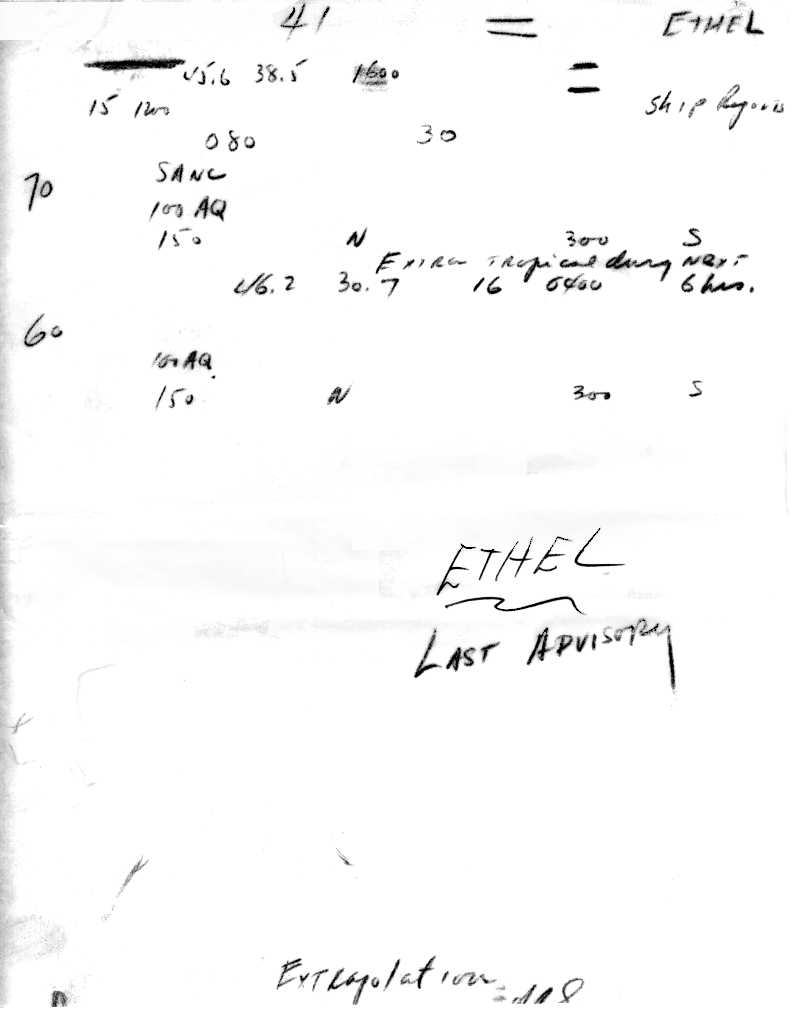 41 = ETHEL
45.6 38.5 1600 =
15 1200 Ship Reports
080 30
70 SANC
100 AQ
150 N 300 S
Extra Tropical during next
46.2 30.7 16 0400 6 hrs.
60
100 AQ
150 N 300 S
ETHEL
LAST ADVISORY
Extrapolation